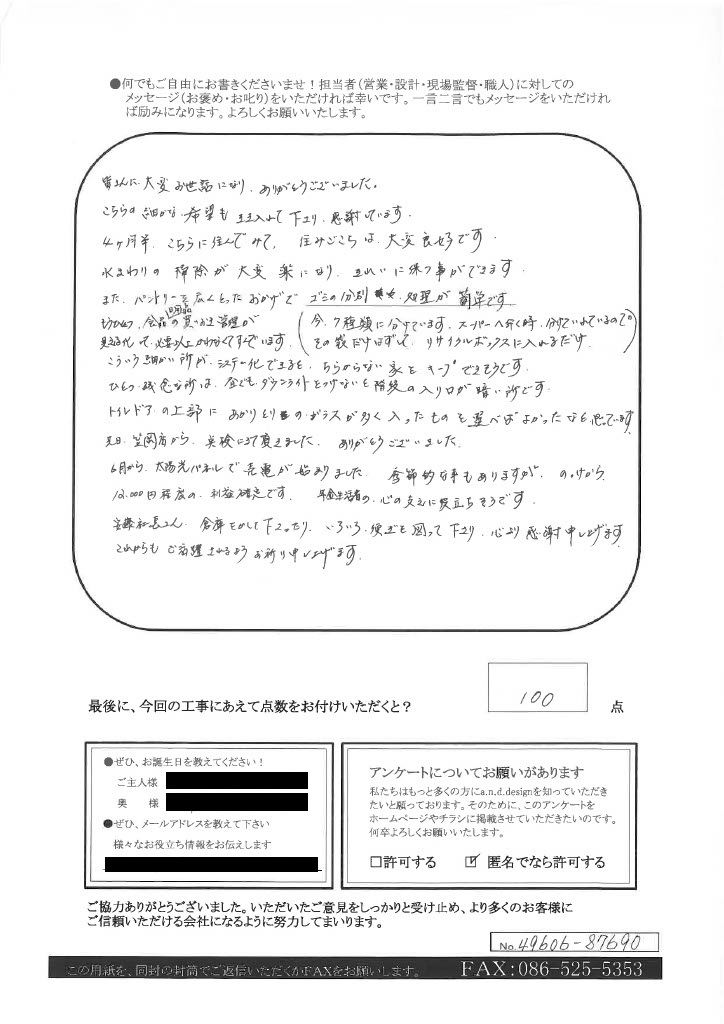 ●何でもご自由にお書きくださいませ！担当者（営業・設計・現場監督・職人）に対しての
メッセージ（お褒め・お叱り）をいただければ幸いです。一言二言でもメッセージをいただけれ
ば励みになります。よろしくお願いいたします。
皆さんに大変お世話になり、ありがとうございました。
こちらの細かな希望も 入れて下さり、感謝しています。
4ヶ月半、こちらに住んでみて、住みごこちは、大変良好です。
水まわりの掃除が大変楽になり、きれいに保つ事ができます。
また、パントリーを広くとったおかげで ゴミの分別 処理が簡単です
食品 日用品 の買いおき管理が
見える化して、必要以上かわなくてすんでいます。
（今、7種類に分けています。スーパーへ行く時、分けていれているので
その袋だけはずして、リサイクルボックスに入れるだけ。）
こういう細かい所が、システム化できると、ちらからない家をキープできそうです。
ひとつ残念な所は、全てダウンライトをつけないと階段の入り口が暗い所です。
ドアの上部にあかりとりのガラスが多く入ったものを選べばよかったなと思っています。
先日、笠岡市から、点検にきて頂きました。ありがとうございました。
6月から、太陽光パネルで売電が始まりました。季節的な事もありますが、
12,000円程度の、利益確定です。年金生活者の、心の支えに役立ちそうです。
社長さん、倉庫をかして下さったり、いろいろ便宜を図って下さり、心より感謝申し上げます。
これからもご活躍されるようお祈り申し上げます。
最後に、今回の工事にあえて点数をお付けいただくと？ 100 点
●ぜひ、お誕生日を教えてください！
ご主人様
奥 様
●ぜひ、メールアドレスを教えて下さい
様々なお役立ち情報をお伝えします
アンケートについてお願いがあります
私たちはもっと多くの方にa.n.d.designを知っていただき
たいと願っております。そのために、このアンケートを
ホームページやチラシに掲載させていただきたいのです。
何卒よろしくお願いいたします。
□許可する ☑匿名でなら許可する
ご協力ありがとうございました。いただいたご意見をしっかりと受け止め、より多くのお客様に
ご信頼いただける会社になるように努力してまいります。
No.49606-87690
この用紙を、同封の封筒でご返信いただくかFAXをお願いします。 FAX:086-525-5353